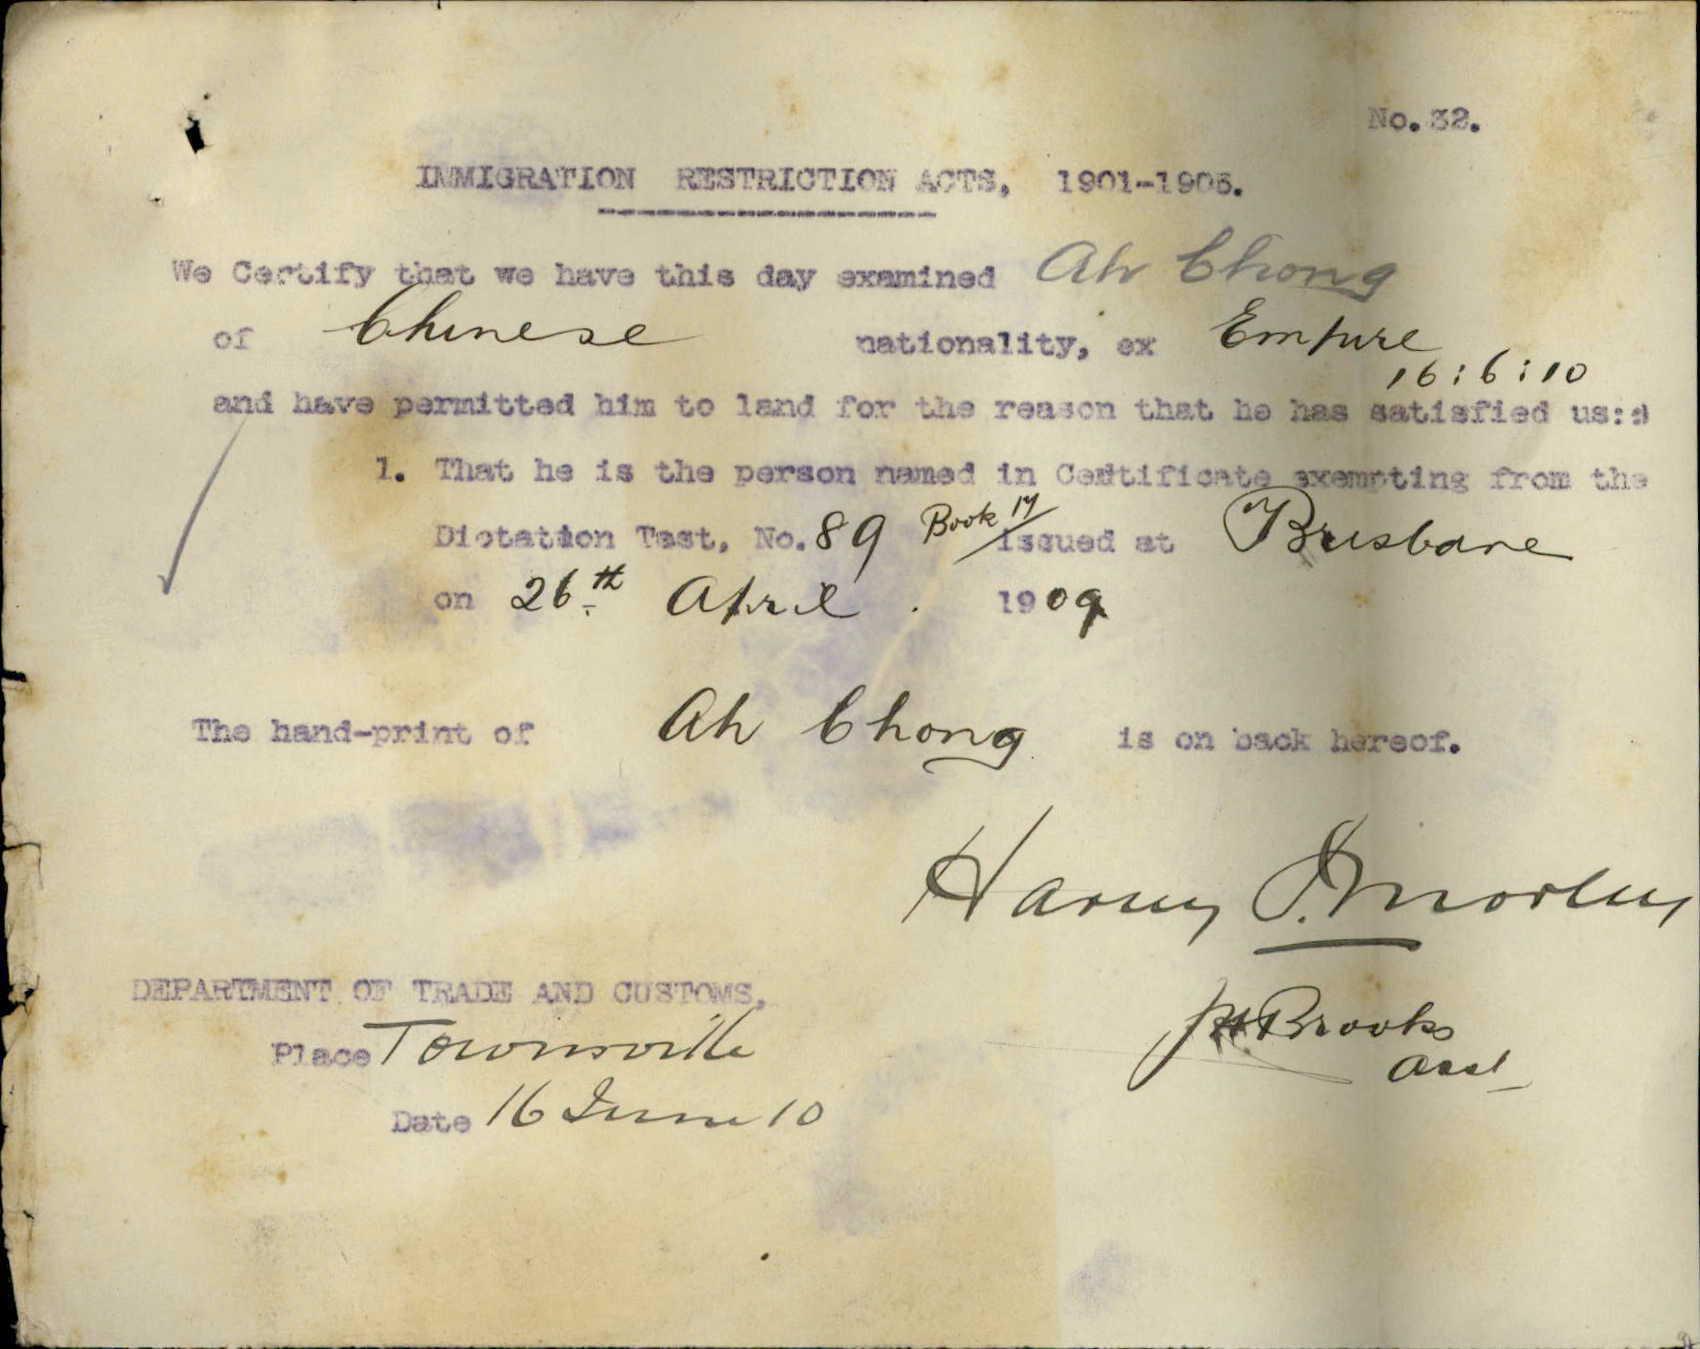 No. 32.
IMMIGRATION RESTRICTION ACTS, 1901-1905.
We Certify that we have this day examined Ah Chong
of Chinese nationality, ex Empire
16:6:10
and have permitted him to land for the reason that he has satisfied us::
1. That he is the person named in Certificate exempting from the
Dictation Test, No. 89 Book 17/ issued at Brisbane
on 26th April. 1909
The hand-print of Ah Chong is on back hereof.
Harvey J. Morley
DEPARTMENT OF TRADE AND CUSTOMS,
Brooks
Place Townsville
Asst
Date 16 June 10